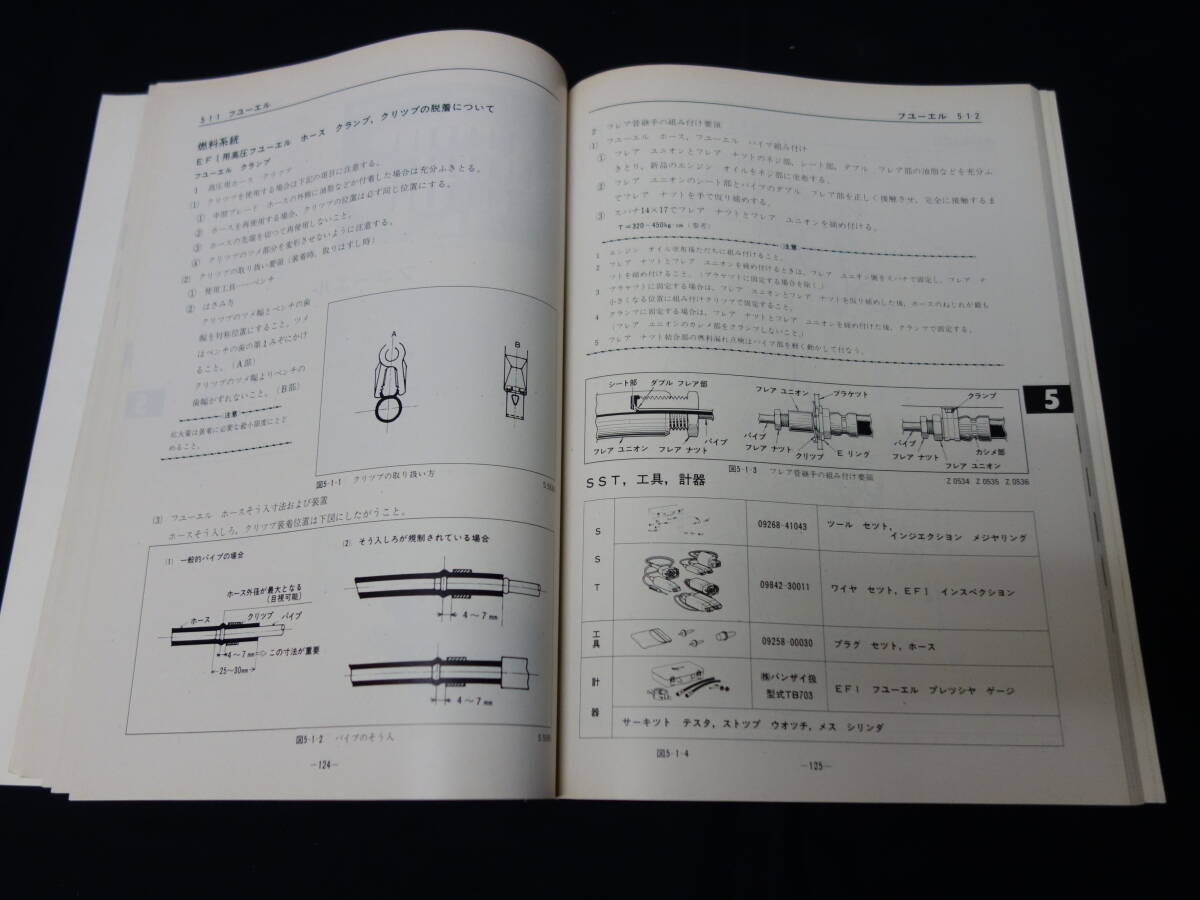 511 フユーエル
燃料系統
EFI用高圧フユーエル ホース クランプ, クリツプの脱着について
フユーエル クランプ
1 高圧用ホース クリツプ
(1) クリツプを使用する場合は下記の項目に注意する。
① 中間ブレード ホースの外観に油脂などが付着した場合は充分ふきとる。
② ホースを再使用する場合, クリツプの位置は必ず同じ位置にする。
③ ホースの先端を切つて再使用しないこと。
④ クリツプのツメ部分を変形させないように注意する。
(2) クリツプの取り扱い要領 (装着時, 取りはずし時)
① 使用工具……ペンチ
② はさみ方
クリツプのツメ幅とペンチの歯
幅を対称位置にすること。ツメ
はペンチの歯の第1みぞにかけ
ること。(A部)
クリツプのツメ幅よりペンチの
歯幅がずれないこと。(B部)
注意
拡大量は装着に必要な最小限度にとど
めること。
A
B
図5-1-1 クリツプの取り扱い方
(3) フユーエル ホースそう入寸法および装置
ホースそう入しろ, クリツプ装着位置は下図にしたがうこと。
(1) 一般的パイプの場合
(2) そう入しろが規制されている場合
ホース外径が最大となる
(目視可能)
ホース
クリツプ
パイプ
4〜7mm
この寸法が重要
25〜30mm
4〜7mm
4〜7mm
図5-1-2 パイプのそう入
—124—
フユーエル 512
2 フレア管継手の組み付け要領
(1) フユーエル ホース, フユーエル パイプ組み付け
① フレア ユニオンとフレア ナツトのネジ部, シート部, ダブル フレア部の油脂などを充分ふ
きとり, 新品のエンジン オイルをネジ部に塗布する。
② フレア ユニオンのシート部とパイプのダブル フレア部を正しく接触させ, 完全に接触するま
でフレア ナツトを手で仮り締めする。
③ スパナ14×17でフレア ナツトとフレア ユニオンを締め付ける。
T=320〜450kg·cm (参考)
注意
1 エンジン オイル塗布後ただちに組み付けること。
2 フレア ナツトとフレア ユニオンを締め付けるときは, フレア ユニオン側をスパナで固定し, フレア ナ
ツトを締め付けること。(ブラケツトに固定する場合を除く。)
3 ブラケツトに固定する場合は, フレア ユニオンとフレア ナツトを仮り締めした後, ホースのねじれが最も
小さくなる位置に組み付けクリツプで固定すること。
4 クランプに固定する場合は, フレア ナツトとフレア ユニオンを締め付けた後, クランプで固定する。
(フレア ユニオンのカシメ部をクランプしないこと。)
5 フレア ナツト結合部の燃料漏れ点検はパイプ部を軽く動かして行なう。
シート部
ダブル フレア部
フレア ユニオン
フレア ナツト
パイプ
フレア ユニオン
ブラケツト
パイプ
フレア ナツト
クリツプ
Eリング
クランプ
パイプ
フレア ナツト
カシメ部
フレア ユニオン
図5-1-3 フレア管継手の組み付け要領
Z0534 Z0535 Z0536
5
SST, 工具, 計器
S
S
T
09268-41043
ツール セツト,
インジエクション メジヤリング
09842-30011
ワイヤ セツト, EFI インスペクション
工
具
09258-00030
プラグ セツト, ホース
計
器
㈱バンザイ扱
型式TB703
EFI フユーエル プレツシヤ ゲージ
サーキツト テスタ, ストツプ ウオツチ, メス シリンダ
図5-1-4
—125—